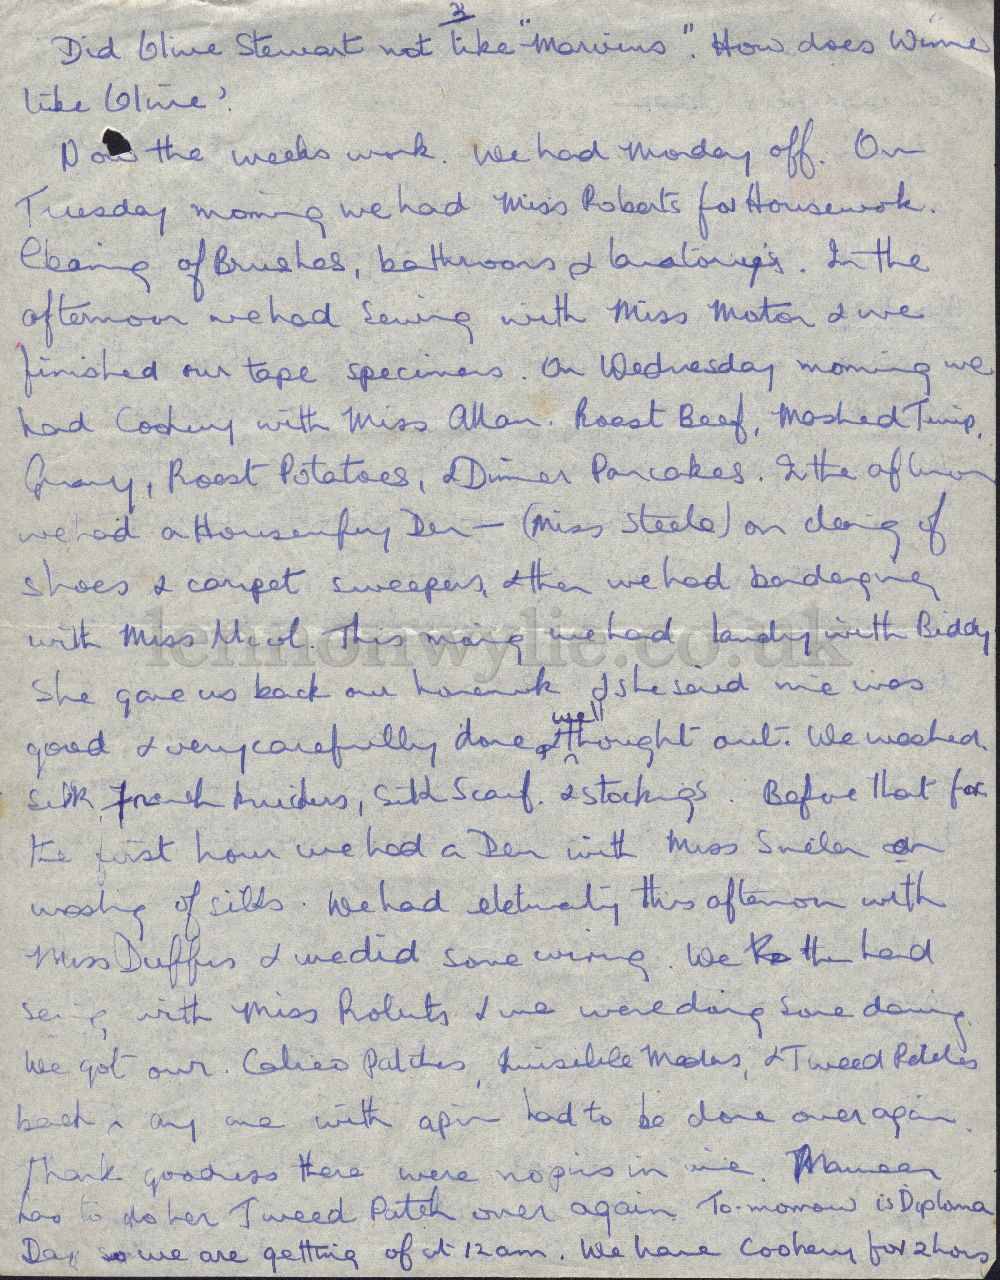 3
Did Olive Stewart not like "Marivins". How does Winnie
like Olive?
Now the weeks work. We had Monday off. On
Tuesday morning we had Miss Roberts for Housework.
Cleaning of Brushes, bathrooms & lavatory's. In the
afternoon we had Sewing with Miss Maton & we
finished our tape specimens. On Wednesday morning we
had Cookery with Miss Allan. Roast Beef, Mashed Turnip,
Gravy, Roast Potatoes, & Dinner Pancakes. In the afternoon
we had a Housewifery Dem — (Miss Steele) on cleaning of
shoes & carpet sweepers, & then we had bandaging
with Miss Nicol. This morning we had laundry with Biddy
She gave us back our homework & she said mine was
good & very carefully done & well thought out. We washed
silk, French knickers, Silk Scarf. & stockings. Before that for
the first hour we had a Dem with Miss on
washing of silks. We had electricity this afternoon with
Miss Duffus & we did some wiring. We then had
sewing with Miss Roberts & we were doing some darning.
We got our Calico Patches, Invisible Mends, & Tweed Patches
back & any one with a pin had to be done over again.
Thank goodness there were no pins in mine. Maureen
has to do her Tweed Patch over again. To-morrow is Diploma
Day so we are getting off at 12 am. We have Cookery for 2 hours
lennonwylie.co.uk